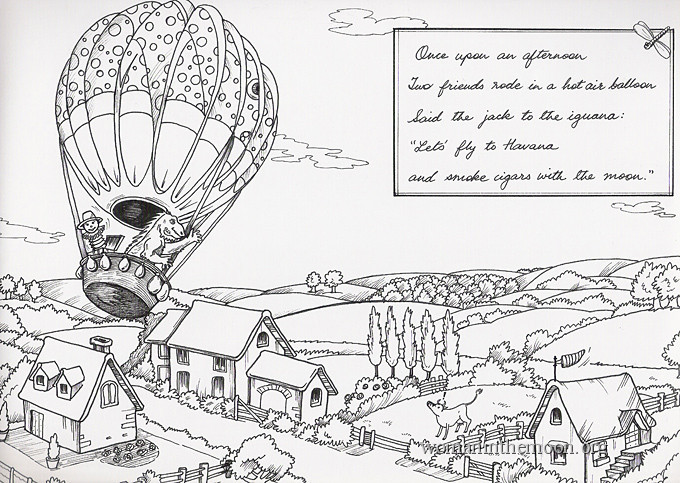 Once upon an afternoon
Two friends rode in a hot air balloon
Said the jack to the iguana:
"Lets' fly to Havana
and smoke cigars with the moon."
womaninthemoon.org